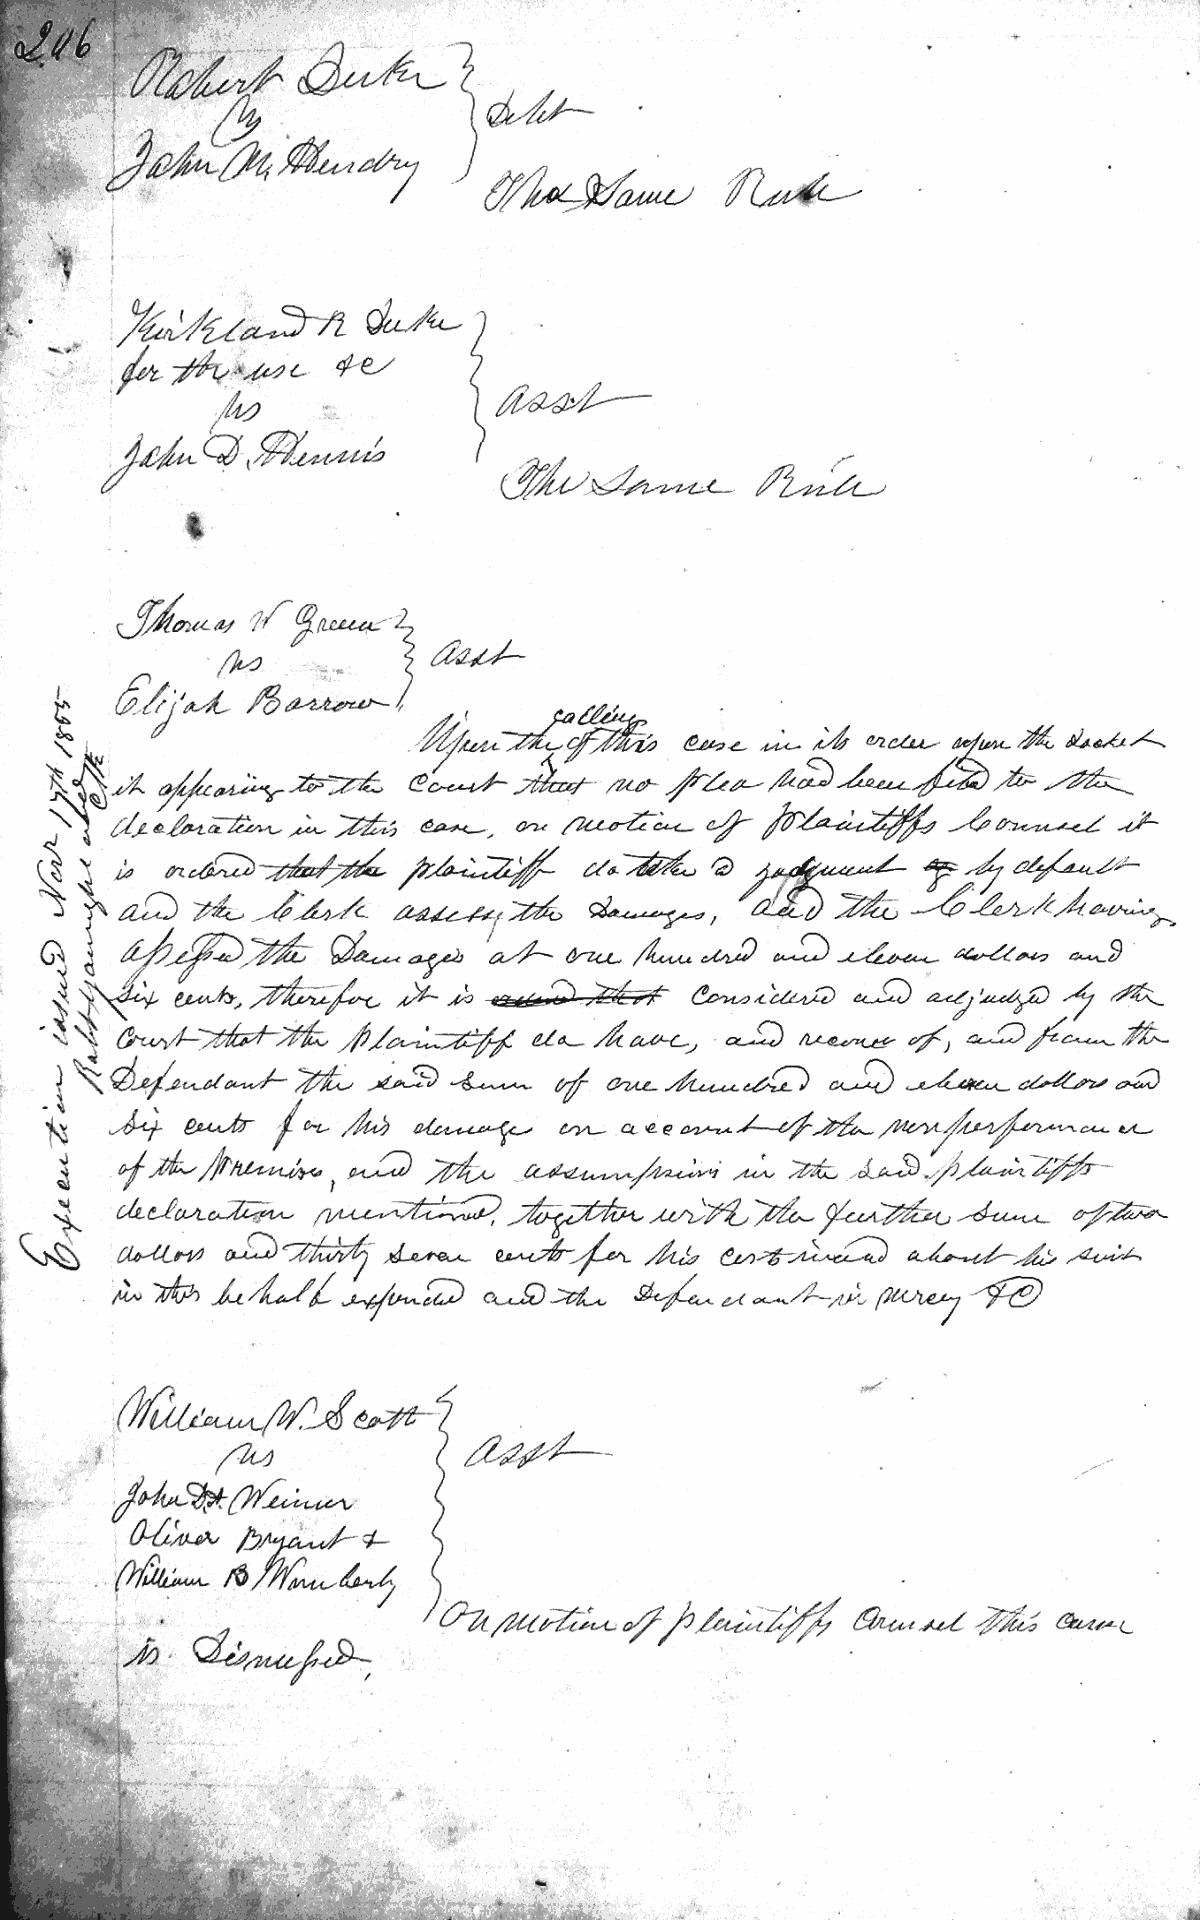 206
Robert Duke
vs
John M. Hendry
Debt
The Same Rule
Kirkland R Duke
for the use &c
vs
John D. Hennis
Asst
The Same Rule
Thomas W Green
vs
Elijah Barrow
Asst
calling
Upon the of this case in its order upon the Docket
it appearing to the Court that no plea had been filed to the
declaration in this case, on motion of Plaintiffs Counsel it
is ordered that the plaintiff do take a judgment by default
and the Clerk assess the Damages, and the Clerk having
assessed the Damages at one hundred and eleven dollars and
six cents, therefor it is considered and adjudged by the
Court that the Plaintiff do have, and recover of, and from the
Defendant the said Sum of one hundred and eleven dollars and
Six cents for his damage on account of the nonperformance
of the Premises, and the assumpsions in the said plaintiffs
declaration mentioned, together with the further sum of two
dollars and thirty seven cents for his costs in and about his suit
in this behalf expended and the Defendant in mercy &C
Execution issued Nov 17th 1855
Clk
William W. Scott
vs
John Weimer
Oliver Bryant &
William B Wimberly
Asst
On motion of plaintiffs Counsel this cause
is Dismissed,